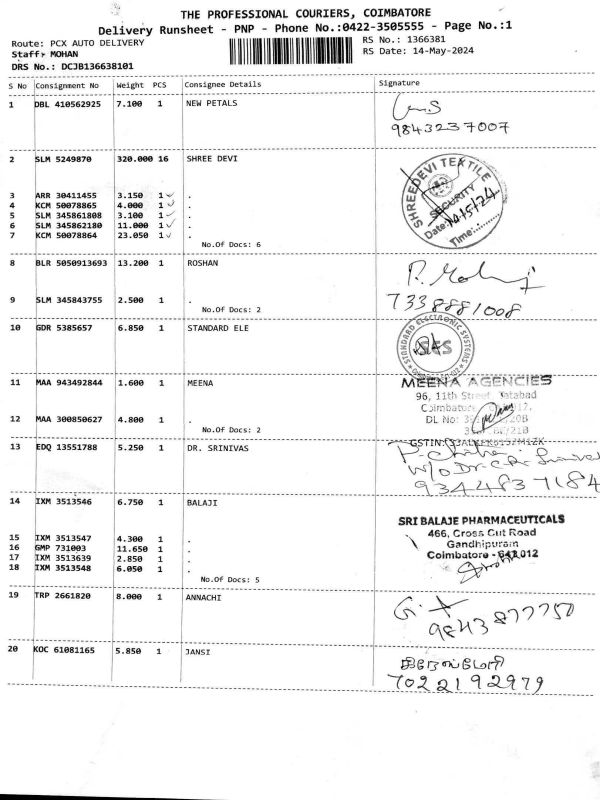 THE PROFESSIONAL COURIERS, COIMBATORE
Delivery Runsheet - PNP - Phone No.:0422-3505555 - Page No.:1
Route: PCX AUTO DELIVERY
RS No.: 1366381
Staff: MOHAN
RS Date: 14-May-2024
DRS No.: DCJB136638101
S No Consignment No Weight PCS Consignee Details Signature
1 DBL 410562925 7.100 1 NEW PETALS
9843237007
2 SLM 5249870 320.000 16 SHREE DEVI
SHREEDEVI TEXTILE
SECURITY
Date: 14/5/24
Time:..........
3 ARR 30411455 3.150 1 ✓ .
4 KCM 50078865 4.000 1 ✓ .
5 SLM 345861808 3.100 1 ✓ .
6 SLM 345862180 11.000 1 ✓ .
7 KCM 50078864 23.050 1 ✓ .
No.Of Docs: 6
8 BLR 5050913693 13.200 1 ROSHAN
9 SLM 345843755 2.500 1 .
7338881008
No.Of Docs: 2
10 GDR 5385657 6.850 1 STANDARD ELE
STANDARD ELECTRONIC SYSTEMS
SES
11 MAA 943492844 1.600 1 MEENA
MEENA AGENCIES
96, 11th Street, Tatabad
DL No:
12 MAA 300850627 4.800 1 .
No.Of Docs: 2
13 EDQ 13551788 5.250 1 DR. SRINIVAS
W/o Dr.
9344837184
14 IXM 3513546 6.750 1 BALAJI
SRI BALAJE PHARMACEUTICALS
466, Cross Cut Road
Gandhipuram
Coimbatore - 641 012
15 IXM 3513547 4.300 1 .
16 GMP 731003 11.650 1 .
17 IXM 3513639 2.850 1 .
18 IXM 3513548 6.050 1 .
No.Of Docs: 5
19 TRP 2661820 8.000 1 ANNACHI
9843877750
20 KOC 61081165 5.850 1 JANSI
7022192979